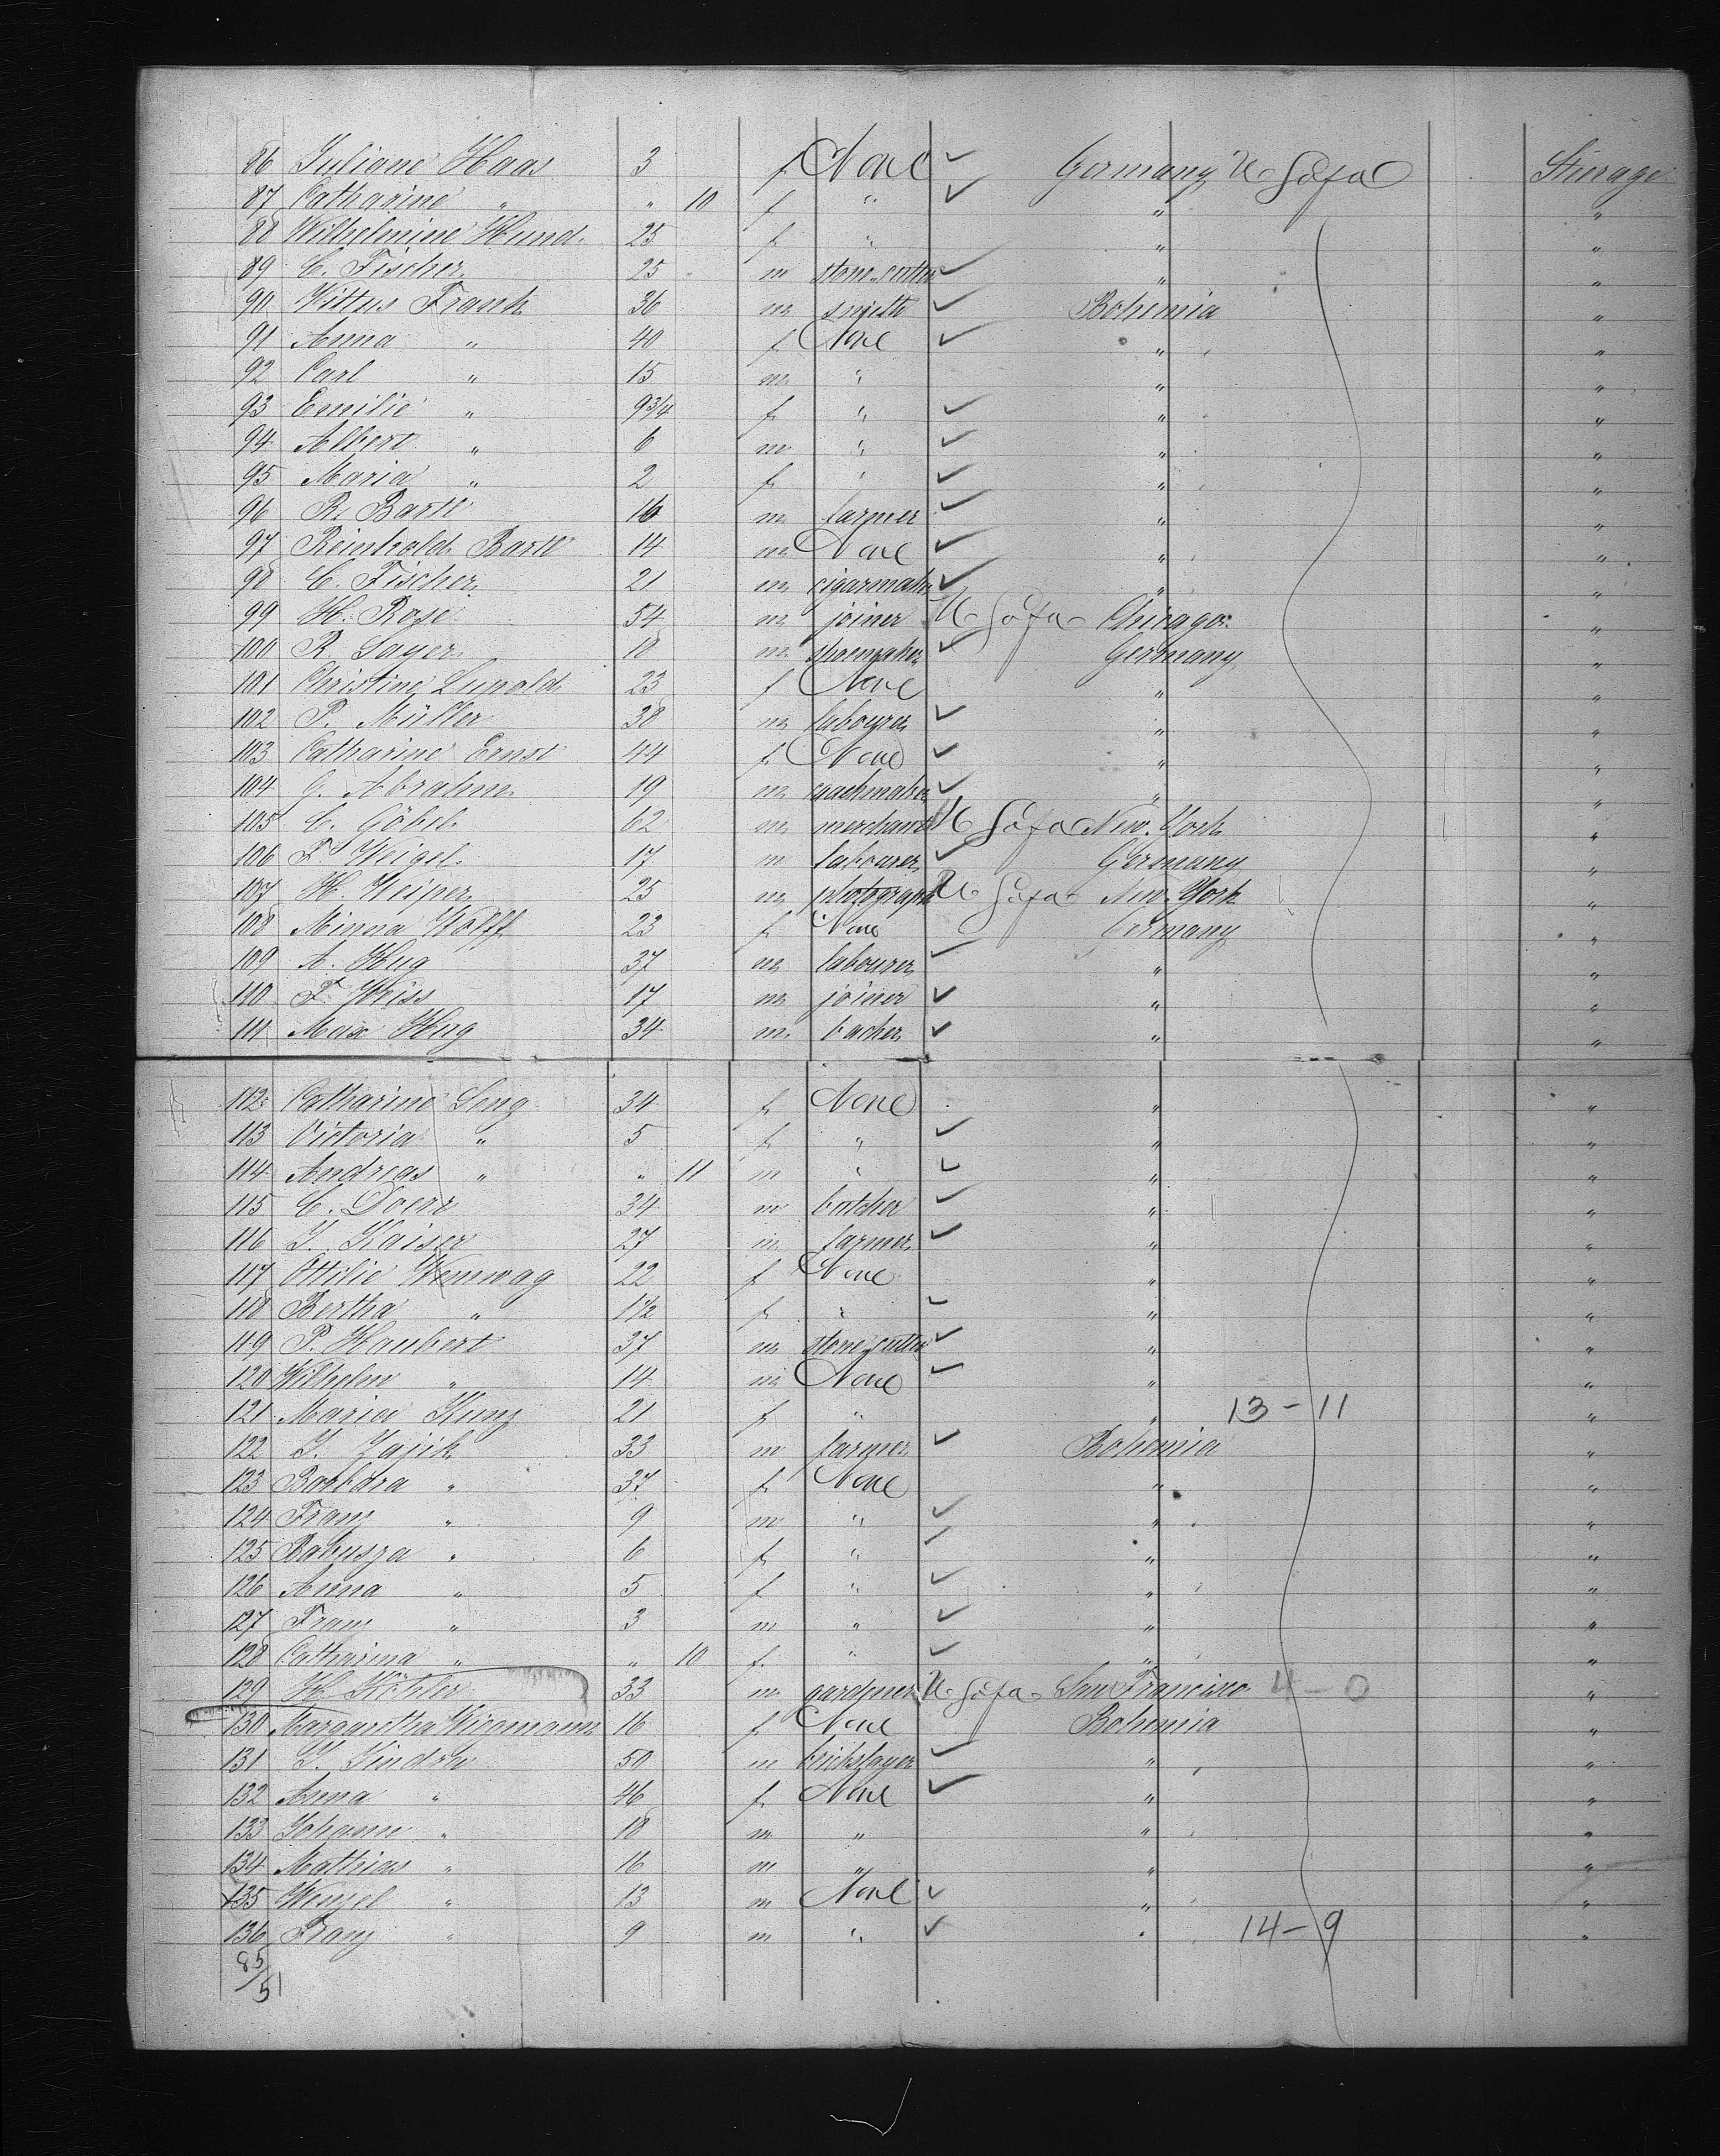 86 Juliane Haas 3 f None ✓ Germany U S of A Steerage
87 Catharine " " 10 f " ✓ " "
88 Wilhelmine Hund 25 f " " "
89 C. Fischer 25 m stone-cutter ✓ " "
90 Vittus Frank 36 m smith ✓ Bohemia "
91 Anna " 40 f None ✓ " "
92 Carl " 15 m " " "
93 Emilie " 9 3/4 f " ✓ " "
94 Albert " 6 m " ✓ " "
95 Maria " 2 f " ✓ " "
96 R. Bartl 16 m farmer ✓ " "
97 Reinhold Bartl 14 m None ✓ " "
98 C. Fischer 21 m cigarmaker ✓ " "
99 H. Rose 54 m joiner U S of A Chicago "
100 R. Sayer 18 m shoemaker ✓ Germany "
101 Christine Lupold 23 f None " "
102 P. Müller 38 m labourer ✓ " "
103 Catharine Ernst 44 f None ✓ " "
104 G. Abraham 19 m coachmaker ✓ " "
105 C. Göbel 62 m merchant U S of A New-York "
106 F. Weigel 17 m labourer ✓ Germany "
107 H. Weiper 25 m photograph U S of A New-York "
108 Minna Wolff 23 f None Germany "
109 A. Hug 37 m labourer ✓ " "
110 F. Weiss 17 m joiner ✓ " "
111 Max Hug 34 m backer ✓ " "
112 Catharine Seng 34 f None " "
113 Victoria " 5 f " ✓ " "
114 Andreas " " 11 m " ✓ " "
115 C. Doerr 34 m butcher ✓ " "
116 J. Kaiser 27 m farmer ✓ " "
117 Ottilie 22 f None " "
118 Bertha " 1 1/2 f " ✓ " "
119 P. Haubert 37 m stone-cutter ✓ " "
120 Wilhelm " 14 m None ✓ " "
121 Maria Kunz 21 f " " 13-11 "
122 J. Zajik 33 m farmer ✓ Bohemia "
123 Barbara " 37 f None " "
124 Franz " 9 m " ✓ " "
125 Babusza " 6 f " ✓ " "
126 Anna " 5 f " ✓ " "
127 Franz " 3 m " ✓ " "
128 Catharina " " 10 f " ✓ " "
129 H. Köhler 33 m gardener U S of A San Francisco 4-0 "
130 Margaretha Wiegmann 16 f None Bohemia "
131 J. Jindra 50 m bricklayer ✓ " "
132 Anna " 46 f None ✓ " "
133 Johann " 18 m " " "
134 Mathias " 16 m " " "
135 Wenzel " 13 m None ✓ " "
136 Franz " 9 m " ✓ " 14-9 "
85/51